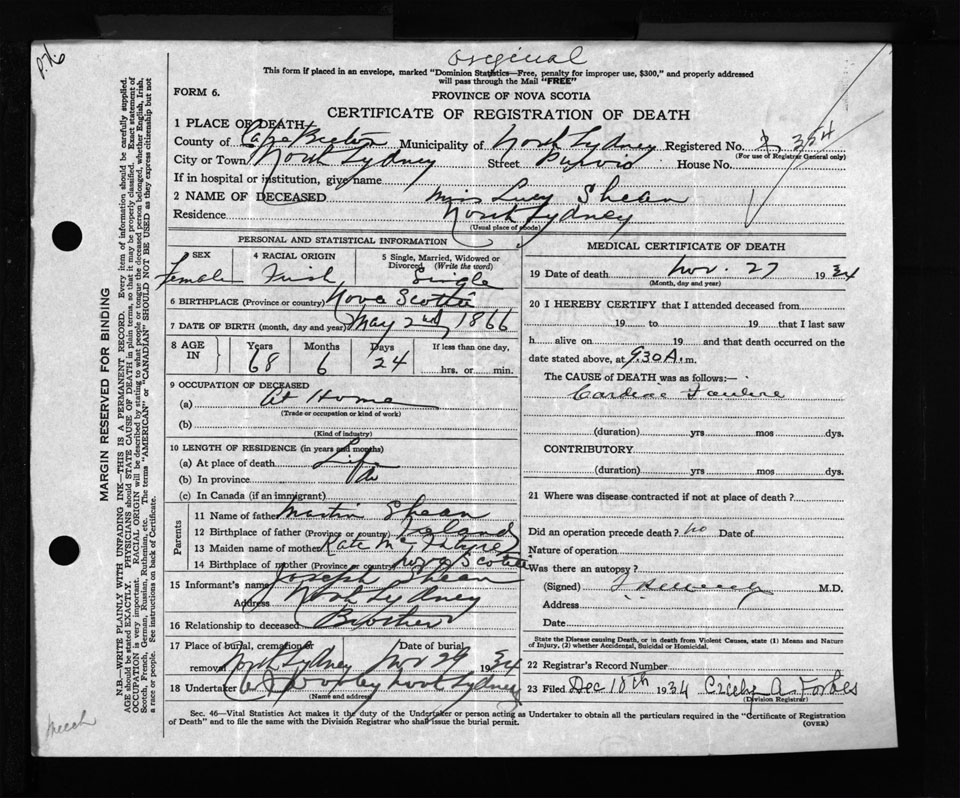 P.H.6
original
This form if placed in an envelope, marked "Dominion Statistics—Free, penalty for improper use, $300," and properly addressed
will pass through the Mail "FREE"
FORM 6.
PROVINCE OF NOVA SCOTIA
CERTIFICATE OF REGISTRATION OF DEATH
1 PLACE OF DEATH
County of Cape Breton Municipality of North Sydney Registered No. 354
(For use of Registrar General only)
City or Town North Sydney Street House No.
If in hospital or institution, give name
2 NAME OF DECEASED Miss Lucy Shean
Residence North Sydney
(Usual place of abode)
PERSONAL AND STATISTICAL INFORMATION
SEX 4 RACIAL ORIGIN 5 Single, Married, Widowed or Divorced (Write the word)
Female Irish Single
6 BIRTHPLACE (Province or country) Nova Scotia
7 DATE OF BIRTH (month, day and year) May 2nd 1866
8 AGE IN Years Months Days If less than one day,
68 6 24 hrs. or min.
9 OCCUPATION OF DECEASED
(a) At Home
(Trade or occupation or kind of work)
(b)
(Kind of industry)
10 LENGTH OF RESIDENCE (in years and months)
(a) At place of death Life
(b) In province
(c) In Canada (if an immigrant)
Parents
11 Name of father Martin Shean
12 Birthplace of father (Province or country) Ireland
13 Maiden name of mother Kate McIntyre
14 Birthplace of mother (Province or country) Nova Scotia
15 Informant's name Joseph Shean
Address North Sydney
16 Relationship to deceased Brother
17 Place of burial, cremation or removal North Sydney Date of burial Nov 29 1934
18 Undertaker North Sydney
(Name and address)
MEDICAL CERTIFICATE OF DEATH
19 Date of death Nov. 27 1934
(Month, day and year)
20 I HEREBY CERTIFY that I attended deceased from
19 to 19 that I last saw
h alive on 19 and that death occurred on the
date stated above, at 9.30 A.m.
The CAUSE of DEATH was as follows:—
Cardiac Failure
(duration) yrs mos dys.
CONTRIBUTORY
(duration) yrs mos dys.
21 Where was disease contracted if not at place of death?
Did an operation precede death? no Date of
Nature of operation
Was there an autopsy?
(Signed) M.D.
Address " "
Date
State the Disease causing Death, or in death from Violent Causes, state (1) Means and Nature
of Injury, (2) whether Accidental, Suicidal or Homicidal.
22 Registrar's Record Number
23 Filed Dec 10th 1934 A. Forbes
(Division Registrar)
Sec. 46—Vital Statistics Act makes it the duty of the Undertaker or person acting as Undertaker to obtain all the particulars required in the "Certificate of Registration
of Death" and to file the same with the Division Registrar who shall issue the burial permit.
(OVER)
MARGIN RESERVED FOR BINDING
N.B.—WRITE PLAINLY WITH UNFADING INK—THIS IS A PERMANENT RECORD. Every item of information should be carefully supplied.
AGE should be stated EXACTLY. PHYSICIANS should STATE CAUSE OF DEATH in plain terms, so that it may be properly classified. Exact statement of
OCCUPATION is very important. RACIAL ORIGIN will be described by stating to what people or tongue the deceased person belonged, whether English, Irish,
Scotch, French, German, Russian, Ruthenian, etc. The terms "AMERICAN" or "CANADIAN" SHOULD NOT BE USED as they express citizenship but not
a race or people. See instructions on back of Certificate.